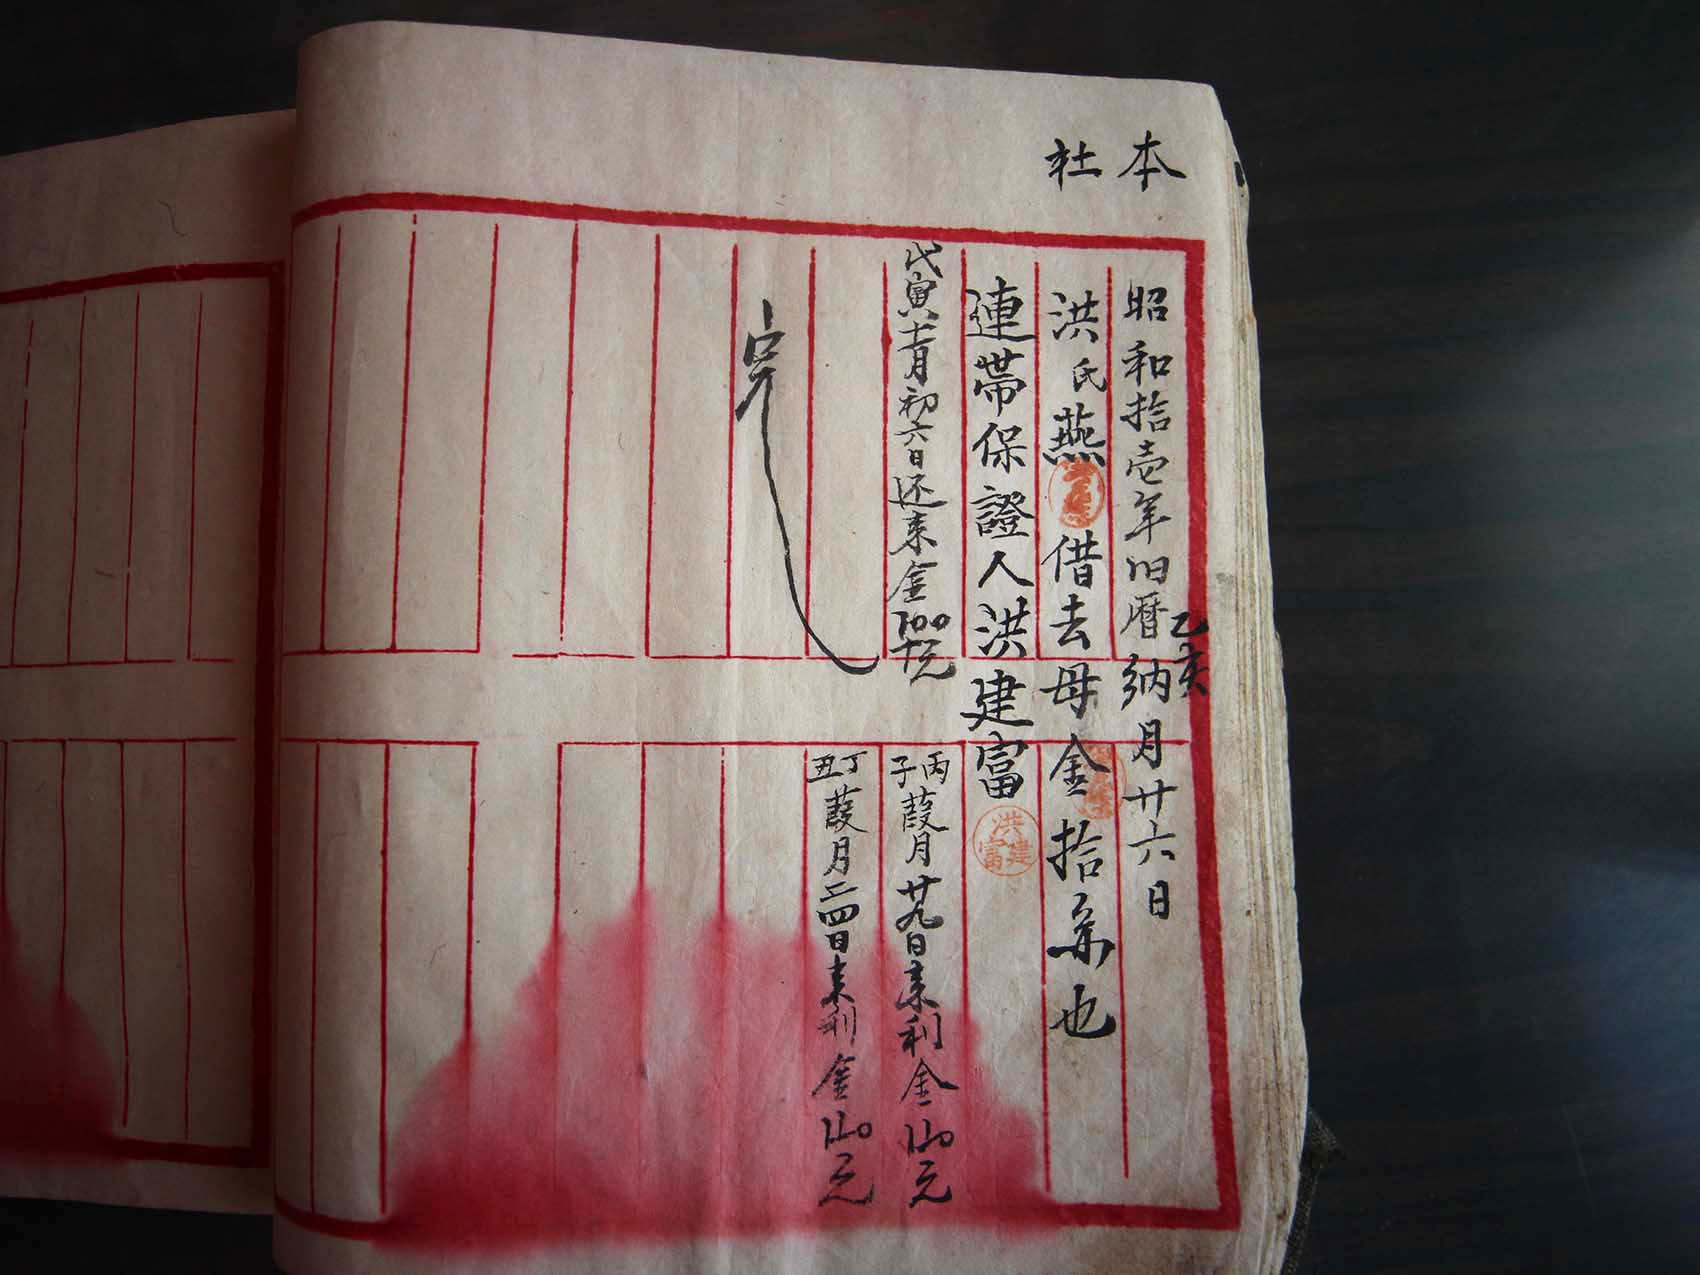 本社
昭和拾壱年旧暦納月廿六日
乙亥
洪氏燕借去母金拾系也
連帯保證人洪建富
洪建富
戊寅十二月初六日还来金〡00十元
丙子葭月廿九日来利金
元
丁丑葭月二四日来利金
元
完